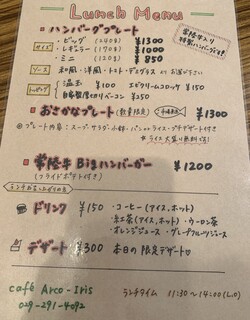 Lunch Menu
ハンバーグプレート
常陸牛入り
特製ハンバーグです
サイズ
・ビッグ (240g) ¥1300
・レギュラー (170g) ¥1000
・ミニ (120g) ¥850
ソース
和風・洋風・トマト・デミグラス から お選び下さい
トッピング
温玉 ¥100 エビクリームコロッケ ¥150
自家製厚切りベーコン ¥250
おさかなプレート (数量限定) ¥1300
◎ プレート内容: スープ・サラダ・小鉢・パンorライス・プチデザート付き
☆ライス大盛り無料です!
常陸牛 Bigハンバーガー ¥1200
(フライドポテト付き)
ドリンク ¥150
・コーヒー (アイス,ホット)
・紅茶 (アイス,ホット) ・ウーロン茶
・オレンジジュース ・グレープフルーツジュース
デザート ¥300 本日の限定デザート♡
café Arco-Iris
029-291-4092
ランチタイム 11:30〜14:00 (L.O)